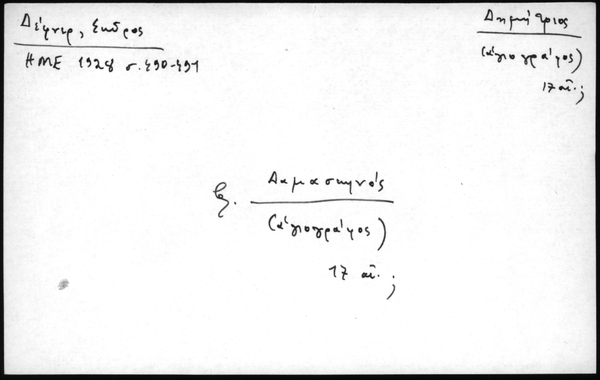 Δέφνερ, Σκῦρος
ΗΜΕ 1928 σ. 490-491
Δημήτριος
(ἁγιογράφος)
17 αἰ. ;
βλ. Δαμασκηνός
(ἁγιογράφος)
17 αἰ. ;